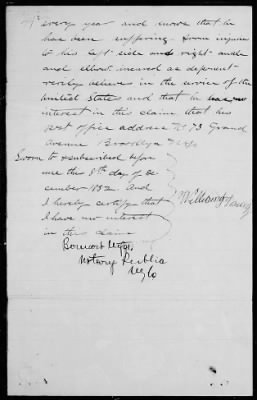 every year and more that he
has been suffering from injury
to his left side and right ankle
and elbow incurred as deponent
verily believes in the service of the
United States and that he has no
interest in this claim that his
post office address is 73 Grand
Avenue Brooklyn
Sworn to & subscribed before
me this 8th day of De
cember 1882. And
I hereby certify that
I have no interest
in this claim
William
Notary Public